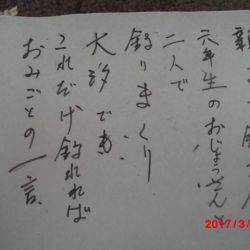 六年生のおじょうさんと
二人で
釣りまくり
大漁でも
これだけ釣れれば
おみごとの一言。
2017/3/